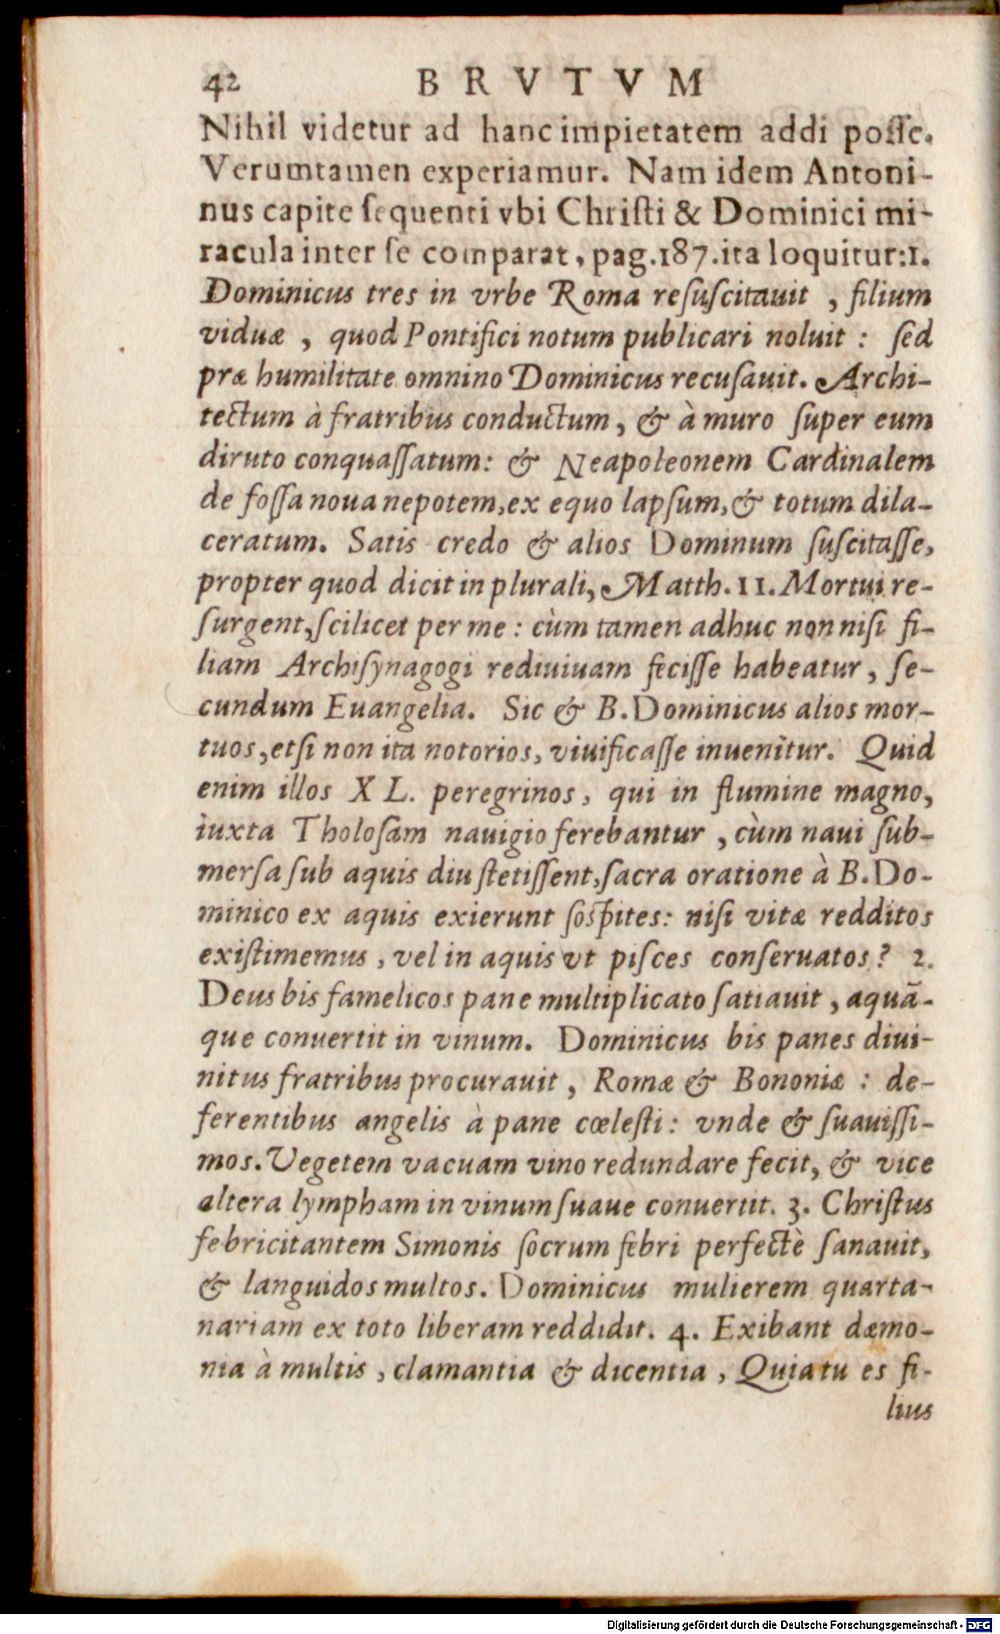 42 BRVTVM
Nihil videtur ad hanc impietatem addi posse.
Verumtamen experiamur. Nam idem Antoni-
nus capite sequenti vbi Christi & Dominici mi-
racula inter se comparat, pag.187.ita loquitur:1.
Dominicus tres in vrbe Roma resuscitauit, filium
viduæ, quod Pontifici notum publicari noluit: sed
præ humilitate omnino Dominicus recusauit. Archi-
tectum à fratribus conductum, & à muro super eum
diruto conquassatum: & Neapoleonem Cardinalem
de fossa noua nepotem, ex equo lapsum, & totum dila-
ceratum. Satis credo & alios Dominum suscitasse,
propter quod dicit in plurali, Matth. 11. Mortui re-
surgent, scilicet per me: cùm tamen adhuc non nisi fi-
liam Archisynagogi rediuiuam fecisse habeatur, se-
cundum Euangelia. Sic & B. Dominicus alios mor-
tuos, etsi non ita notorios, viuificasse inuenitur. Quid
enim illos XL. peregrinos, qui in flumine magno,
iuxta Tholosam nauigio ferebantur, cùm naui sub-
mersa sub aquis diu stetissent, sacra oratione à B. Do-
minico ex aquis exierunt sospites: nisi vitæ redditos
existimemus, vel in aquis vt pisces conseruatos? 2.
Deus bis famelicos pane multiplicato satiauit, aquã-
que conuertit in vinum. Dominicus bis panes diui-
nitus fratribus procurauit, Romæ & Bononiæ: de-
ferentibus angelis à pane cœlesti: vnde & suauissi-
mos. Vegetem vacuam vino redundare fecit, & vice
altera lympham in vinum suaue conuertit. 3. Christus
febricitantem Simonis socrum febri perfectè sanauit,
& languidos multos. Dominicus mulierem quarta-
nariam ex toto liberam reddidit. 4. Exibant dæmo-
nia à multis, clamantia & dicentia, Quia tu es fi-
lius
Digitalisierung gefördert durch die Deutsche Forschungsgemeinschaft - DFG